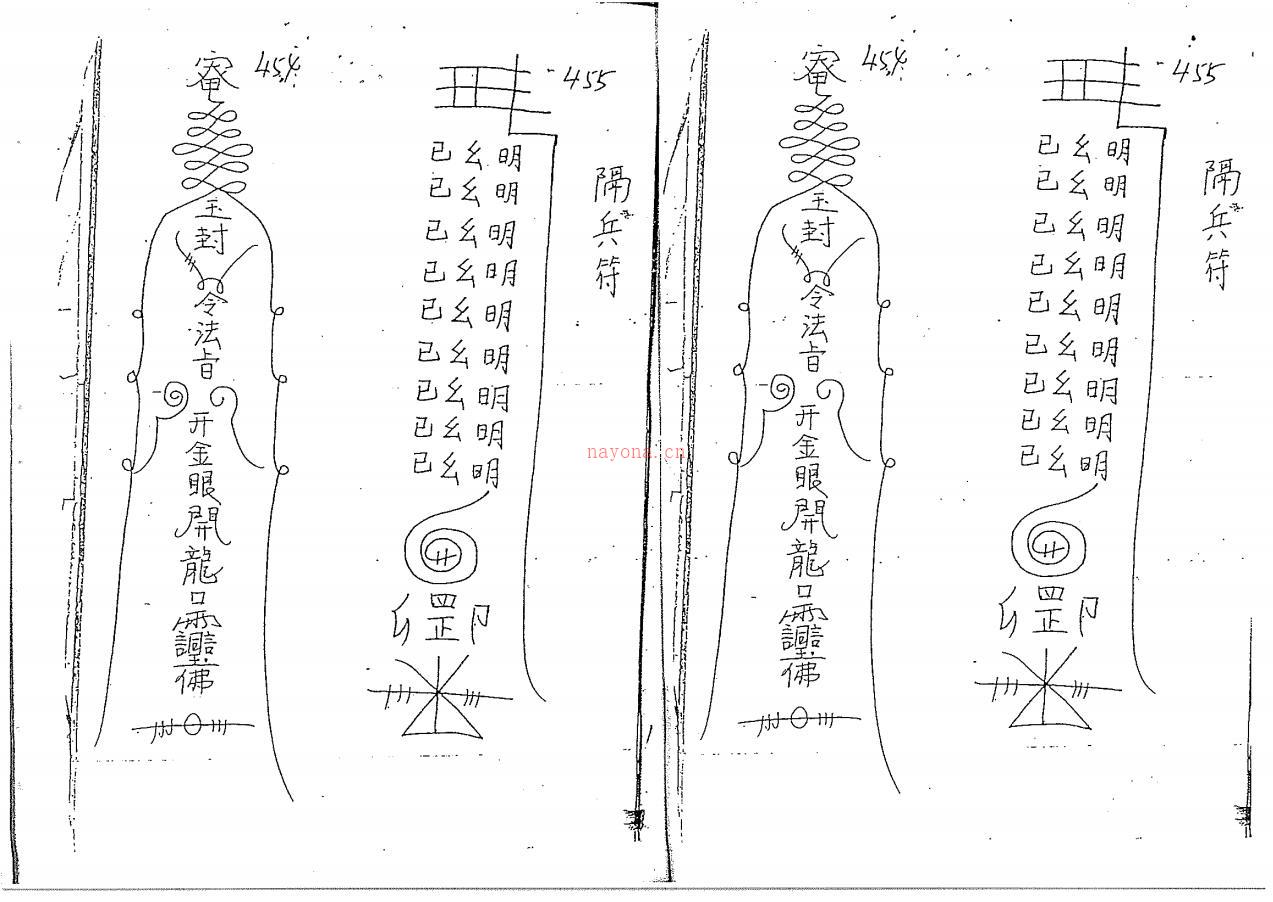 454
玉封
令法旨
开金眼開龍口
佛
455
隔兵符
已幺明
已幺明
已幺明
已幺明
已幺明
已幺明
已幺明
已幺明
已幺明
罡
nayona.cn
454
玉封
令法旨
开金眼開龍口
佛
455
隔兵符
已幺明
已幺明
已幺明
已幺明
已幺明
已幺明
已幺明
已幺明
已幺明
罡